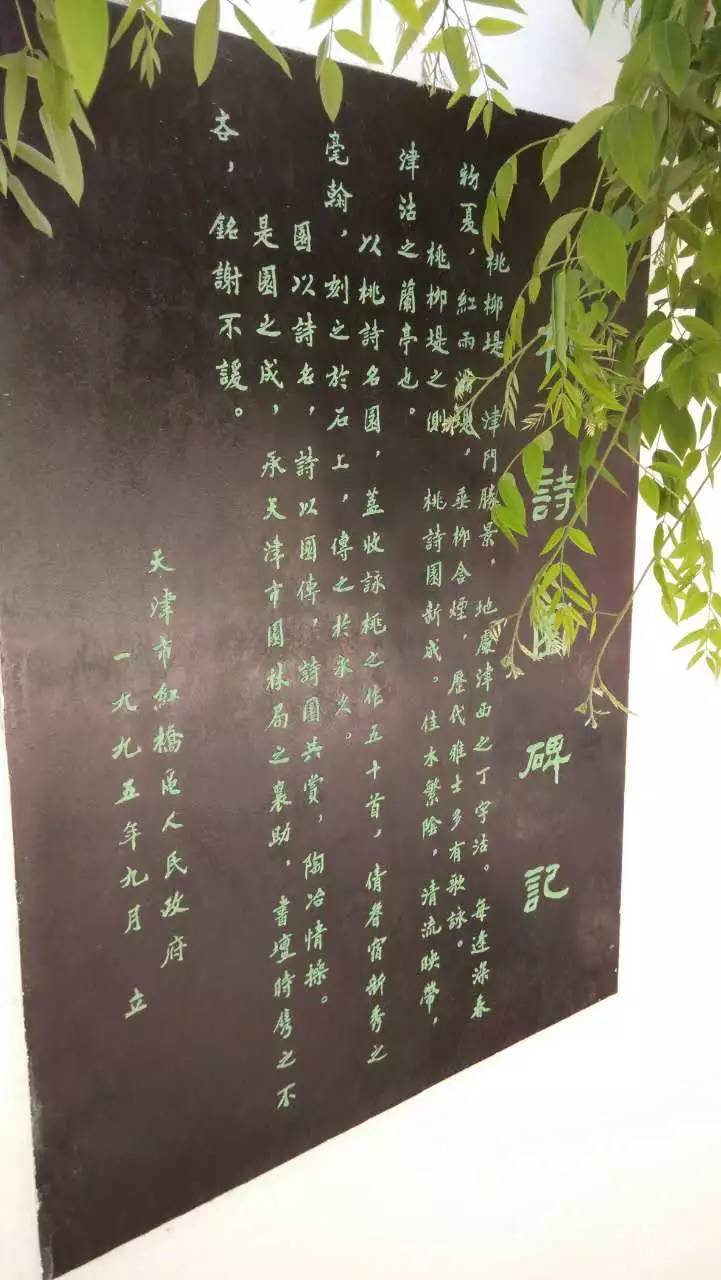 詩園碑記
桃柳堤，津門勝景，地處津西之丁字沽。每逢深春
初夏，紅雨堤，垂柳含煙，歷代雅士多有歌詠。
桃柳堤之側桃詩園新成。佳木繁陰，清流映帶，
津沽之蘭亭也。
以桃詩名園，蓋收詠桃之作五十首，倩耆宿新秀之
毫翰，刻之於石上，傳之於永久。
園以詩名，詩以園傳，詩園共賞，陶冶情操。
是園之成，承天津市園林局之襄助，書壇時雋之不
吝，銘謝不諼。
天津市紅橋區人民政府
一九九五年九月 立